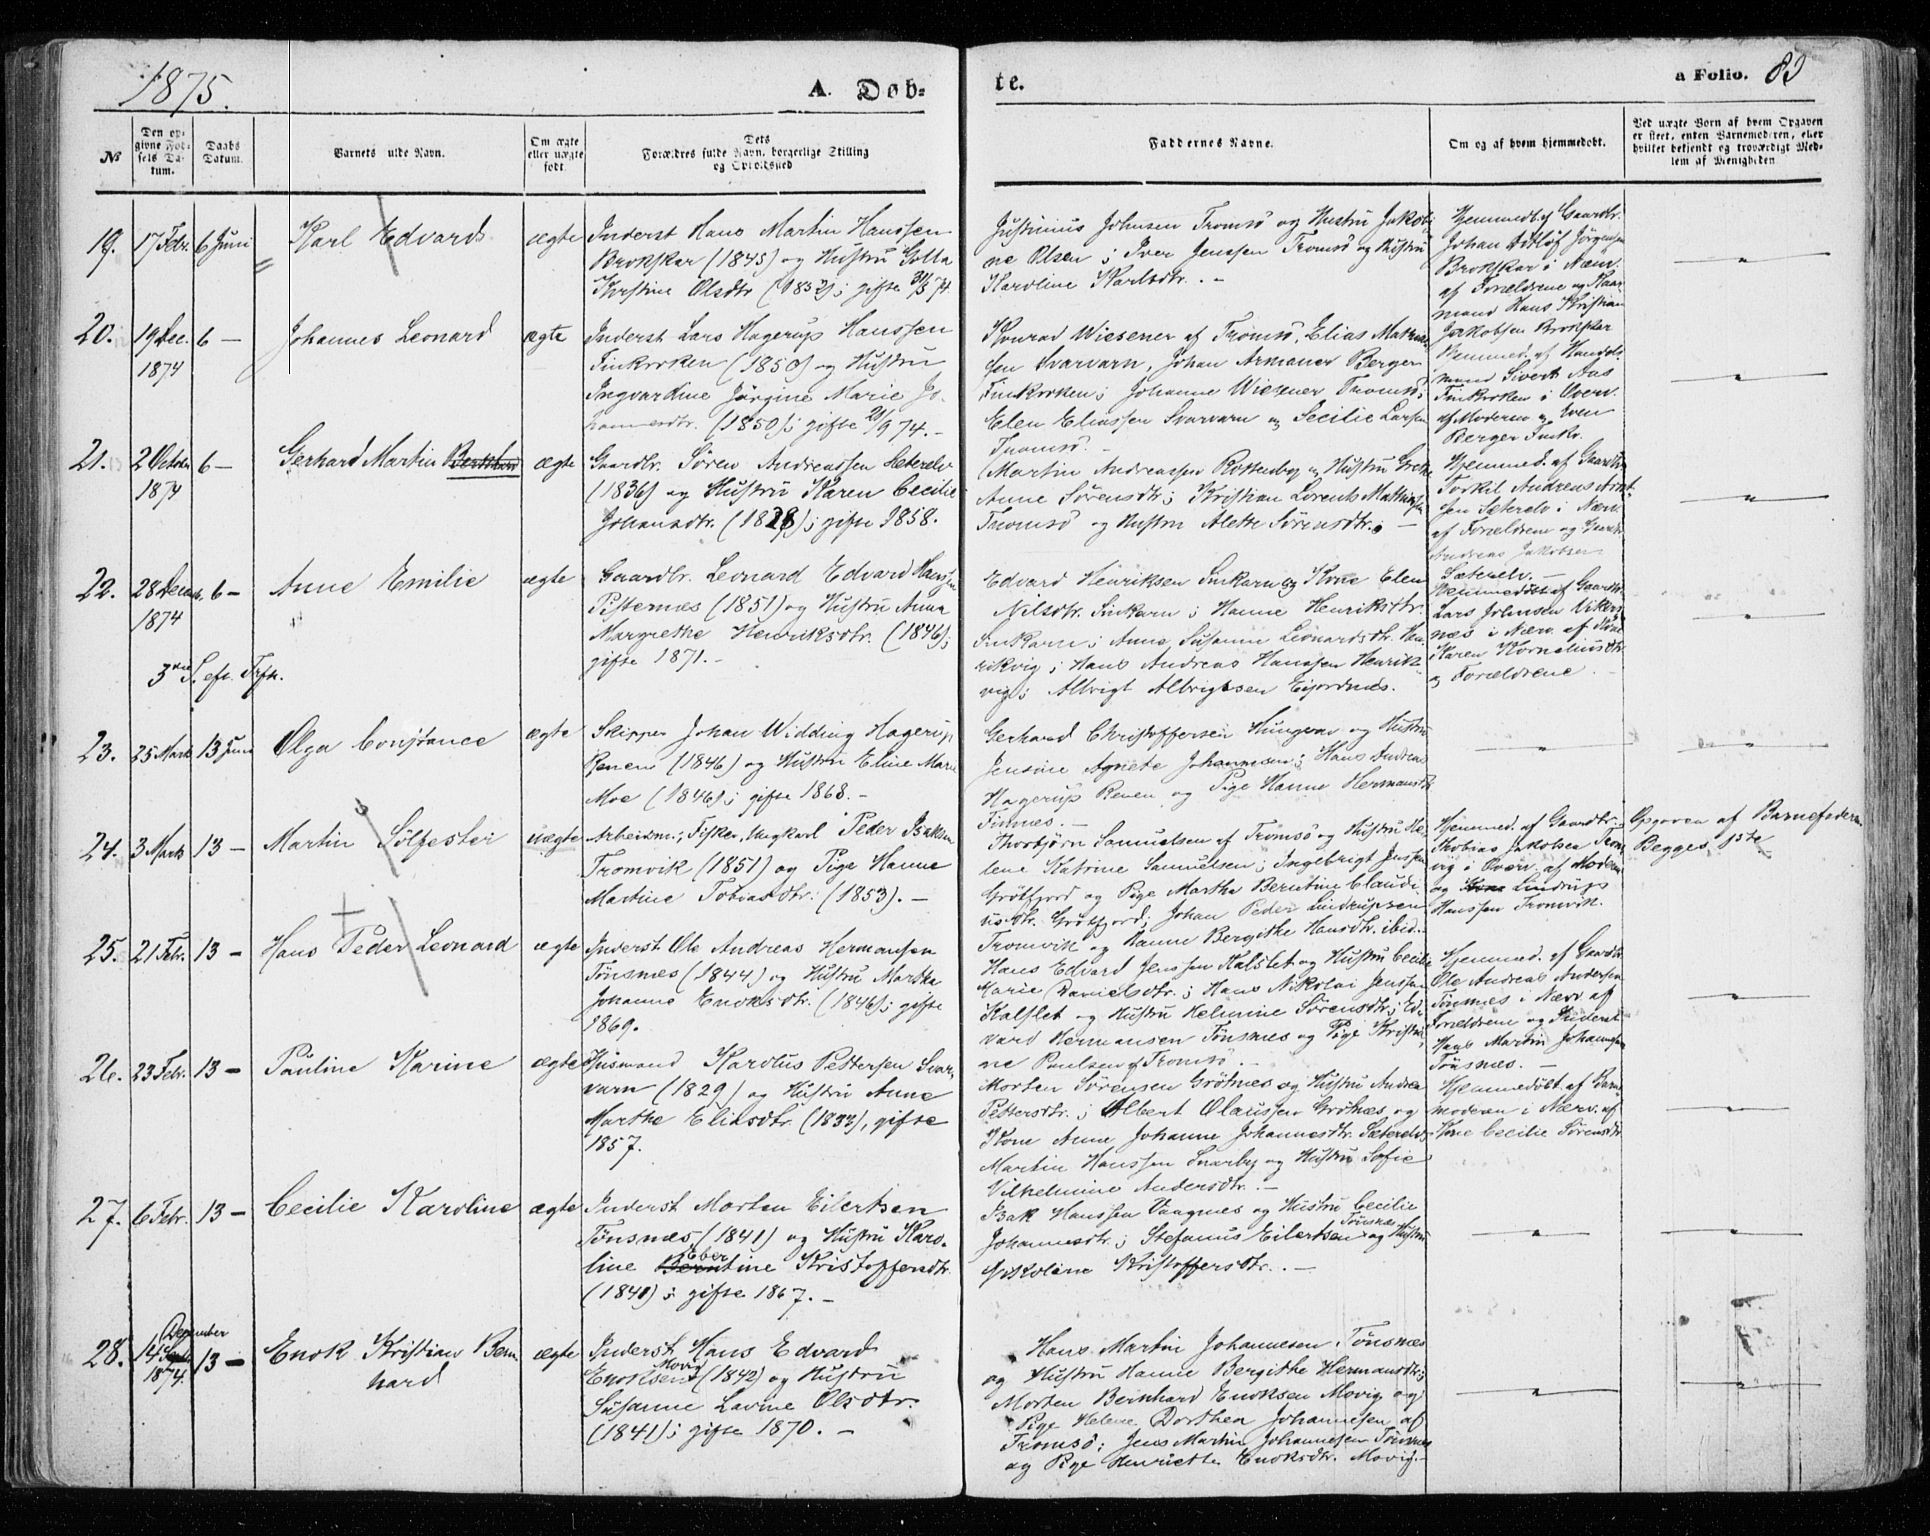 1875.
A. Døb-
te.
a Folio. 83
№
Den op-
givne Fød-
sels Da-
tum.
Daabs
Datum.
Barnets fulde Navn.
Om ægte
eller uægte
født.
Dets
Forældres fulde Navn, borgerlige Stilling
og Opholdssted
Faddernes Navne.
Om og af hvem hjemmedøbt.
Ved uægte Børn af hvem Opgaven
er skeet, enten Barnemoderen, eller
hvilket bekjendt og troværdigt Med-
lem af Menigheden
19. 17 Febr. 6 Juni Karl Edvard ægte
Inderst Hans Martin Hanssen
Brokskar (1845) og Hustru Golla
Kirstine Olsdtr (1852); gifte 31/8 74.
Justinius Johnsen Tromsø og Hustru Jakobi-
ne Olsen; Iver Jenssen Tromsø og Hustru
Karoline Karlsdtr. -
Hjemmedb. af Gaardbr.
Johan Adtlof Jørgensen
Brokskar i Nærv.
af Forældrene og Kaar-
mand Hans Kristian
Jakobsen Brokskar
20. 19 Dec. 1874 6 - Johannes Leonard ægte
Inderst Lars Hagerup Hanssen
Finkroken (1850) og Hustru
Ingvardine Jørgine Marie Jo-
hannesdtr. (1850); gifte 21/9 74. -
Konrad Wiesener af Tromsø, Elias Mathis-
sen Svarvarn, Johan Armauer Berger
Finkroken; Johanne Wiesener Tromsø;
Elen Eliassen Svarvarn og Secilie Larsen
Tromsø -
Hjemmed. af Handels-
mand Sivert Aas
Finkroken i Overv.
af Moderen og Even
Berger Finkr.
21. 2 October 1874 6 - Gerhard Martin ægte
Gaardbr. Søren Andreassen Sæterelv
(1836) og Hustru Karen Cecilie
Johansdtr. (1828); gifte 1858.
Martin Andreassen Rottenby og Hustru Grethe
Anne Sørensdtr; Kristian Lorents Mathisen
Tromsø og Hustru Alette Sørensdtr. -
Hjemmed. af Gaardbr.
Torkil Andreas Arnt-
sen Sæterelv i Nærv.
af Forældrene og Gaardbr.
Andreas Jakobsen
Sæterelv. -
22. 28 Decem. 1874 6 - Anne Emilie ægte
Gaardbr. Leonard Edvard Hanssen
Pisternes (1851) og Hustru Anna
Margrethe Henriksdtr. (1846);
gifte 1871. -
Edvard Henriksen Sinkarn og Kone Elen
Nilsdtr. Sinkarn; Hanne Henriksdtr.
Sinkarn; Anne Susanne Leonardsdtr. Hen-
rikvig; Hans Andreas Hanssen Henrik-
vig; Albrigt Albrigtsen Ejordnes.
Hjemmedøbt af Gaardbr.
Lars Johnsen Vikers-
næs i Nærv. af Kone
Karen Korneliusdtr.
og Forældrene -
3die S. eft. Trfh.
23. 25 Marts 13 Juni Olga Constance ægte
Skipper Johan Widding Hagerup
Renen (1846) og Hustru Eline Marie
Moe (1846); gifte 1868. -
Gerhard Christoffersen Hungeren og Hustru
Jensine Agnete Johannesen; Hans Andreas
Hagerup Renen og Pige Hanne Hermansdtr.
Finnes. -
24. 3 Marts 13 - Martin Sølfester uægte
Arbeidsm.; Fisker, Ungkarl Peder Isaksen
Tromvik (1851) og Pige Hanne
Martine Tobiasdtr. (1853). -
Thorbjørn Samuelsen af Tromsø og Hustru He-
lene Katrine Samuelsen; Ingebrigt Jenssen
Grøtfjord og Pige Martha Berntine Claudi-
usdtr. Grøtfjord; Johan Peder Lindrupsen
Tromvik og Hanne Bergithe Hansdtr. ibid.
Hjemmed. af Gaardbr.
Thobias Jakobsen Trom-
vig i Overv. af Moderen
og Lindrup
Hanssen Tromvik.
Opgaven af Barnefaderen
Begges 1ste
25. 21 Febr. 13 - Hans Peder Leonard ægte
Inderst Ole Andreas Hermansen
Tønsnes (1844) og Hustru Martha
Johanne Enoksdtr. (1846); gifte
1869.
Hans Edvard Jenssen Kalslet og Hustru Cecilie
Marie Danielsdtr.; Hans Nikolai Jenssen
Kalslet og Hustru Helmine Sørensdtr.; Ed-
vard Hermansen Tønsnes og Pige Kristi-
ne Paulsen af Tromsø -
Hjemmed. af Gaardbr.
Ole Andreas Andersen
Tønsnes i Nærv. af
Forældrene og Inderst
Hans Martin Johannesen
Tønsnes. -
26. 23 Febr. 13 - Pauline Karine ægte
Husmand Karolus Pettersen Svar-
varn (1829) og Hustru Anne
Marthe Eliasdtr. (1832), gifte
1857.
Morten Sørensen Grøtnes og Hustru Andrea
Pettersdtr.; Albert Olaussen Grøtnes og
Kone Anne Johanne Johannesdtr. Sæterelv;
Martin Hanssen Snarby og Hustru Sofie
Vilhelmine Andersdtr. -
Hjemmedøbt af Barne-
moderen i Nærv. af
Kone Cecilie Sørensdtr.
27. 6 Febr. 13 - Cecilie Karoline ægte
Inderst Morten Eilertsen
Tønsnes (1841) og Hustru Karo-
line Ebertine Kristoffersdtr.
(1840); gifte 1867. -
Isak Hanssen Vaagnes og Hustru Cecilie
Johannesdtr.; Stefanus Eilertsen Tønsnes og Hustru
Nikoline Kristoffersdtr. -
28. 14 December 1874. 13 - Enok Kristian Bern-
hard ægte
Inderst Hans Edvard
Enoksen Movig (1842) og Hustru
Susanne Lavine Olsdtr.
(1841); gifte 1870. -
Hans Martin Johannesen Tønsnes
og Hustru Hanne Bergithe Hermansdtr;
Morten Beinhard Enoksen Movig og
Pige Helene Dorthea Johannesen af
Tromsø; Jens Martin Johannesen Tønsnes
og Pige Henriette Enoksdtr. Movig. -